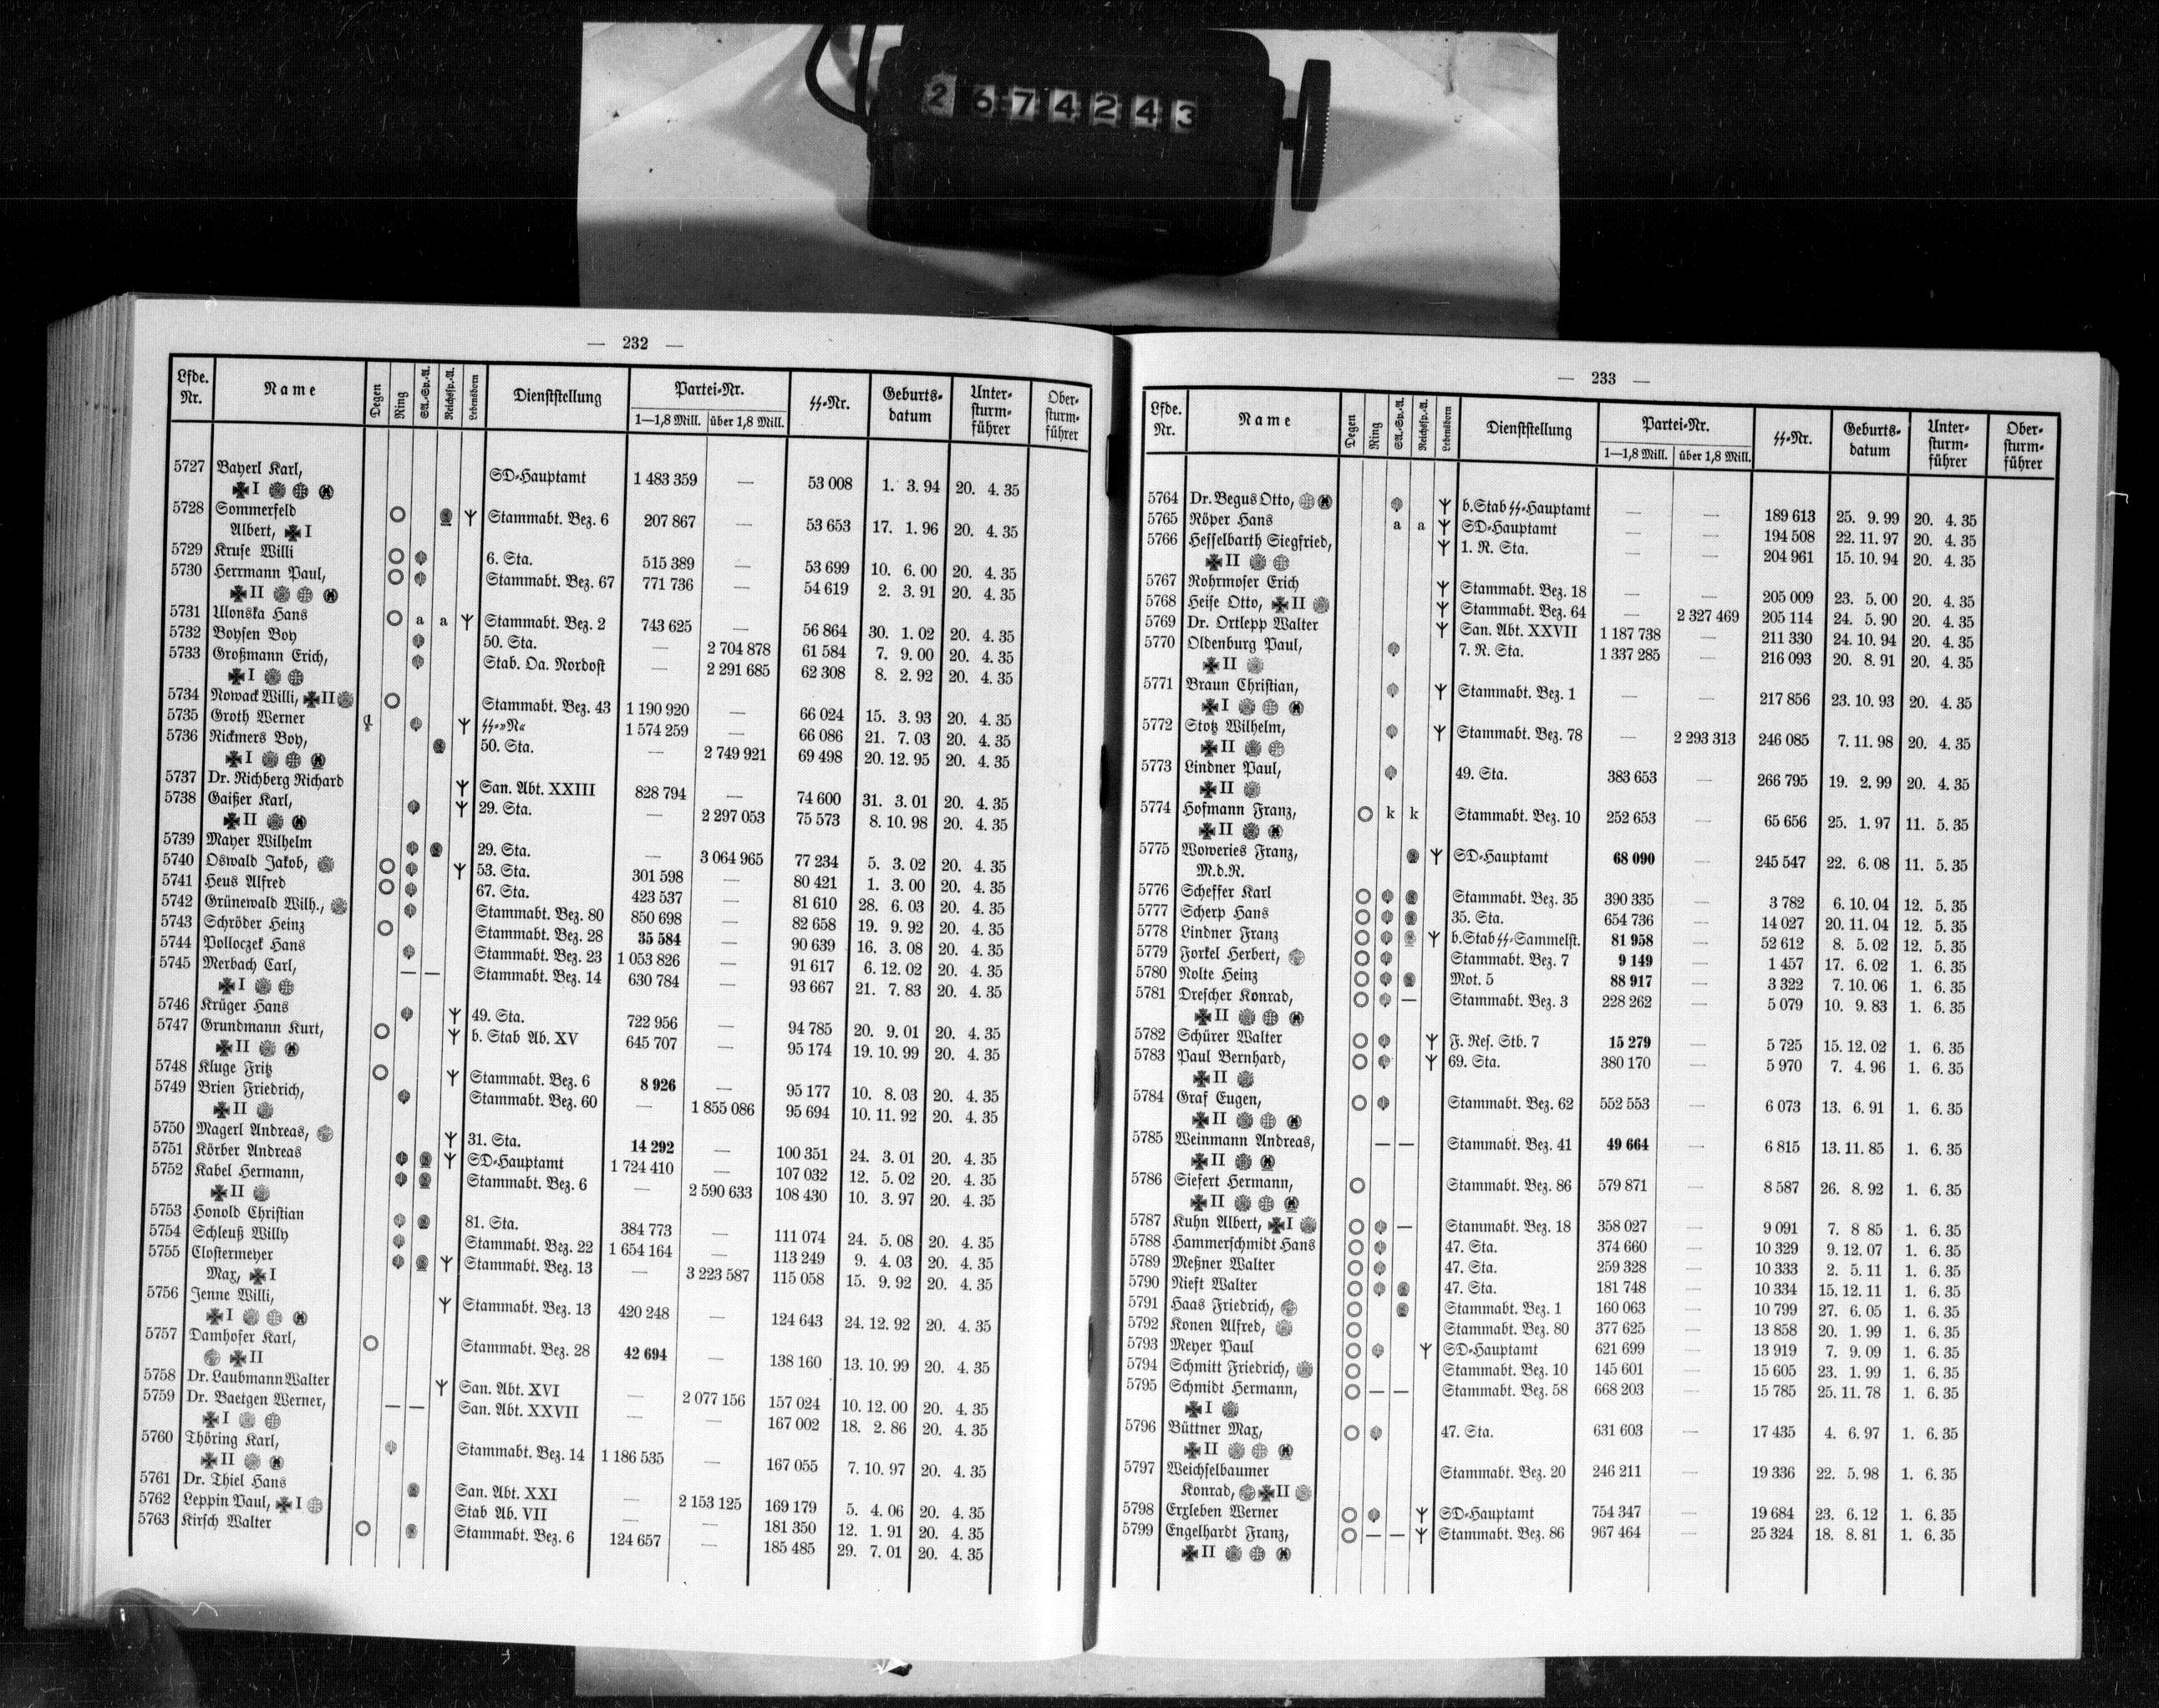 2674243
— 232 —
Lfde. Nr. Name Degen Ring SA.-Sp.-A. Reichssp.-A. Lebensborn Dienststellung Partei-Nr. 1—1,8 Mill. über 1,8 Mill. SS-Nr. Geburts-datum Unter-sturm-führer Ober-sturm-führer
5727 Bayerl Karl, SD-Hauptamt 1 483 359 — 53 008 1. 3. 94 20. 4. 35
I
5728 Sommerfeld Stammabt. Bez. 6 207 867 — 53 653 17. 1. 96 20. 4. 35
Albert, I
5729 Kruse Willi 6. Sta. 515 389 — 53 699 10. 6. 00 20. 4. 35
5730 Herrmann Paul, Stammabt. Bez. 67 771 736 — 54 619 2. 3. 91 20. 4. 35
II
5731 Ulonska Hans a a Stammabt. Bez. 2 743 625 — 56 864 30. 1. 02 20. 4. 35
5732 Boysen Boy 50. Sta. — 2 704 878 61 584 7. 9. 00 20. 4. 35
5733 Großmann Erich, Stab. Oa. Nordost — 2 291 685 62 308 8. 2. 92 20. 4. 35
I
5734 Nowack Willi, II Stammabt. Bez. 43 1 190 920 — 66 024 15. 3. 93 20. 4. 35
5735 Groth Werner SS-»R« 1 574 259 — 66 086 21. 7. 03 20. 4. 35
5736 Rickmers Boy, 50. Sta. — 2 749 921 69 498 20. 12. 95 20. 4. 35
I
5737 Dr. Richberg Richard San. Abt. XXIII 828 794 — 74 600 31. 3. 01 20. 4. 35
5738 Gaißer Karl, 29. Sta. — 2 297 053 75 573 8. 10. 98 20. 4. 35
II
5739 Mayer Wilhelm 29. Sta. — 3 064 965 77 234 5. 3. 02 20. 4. 35
5740 Oswald Jakob, 53. Sta. 301 598 — 80 421 1. 3. 00 20. 4. 35
5741 Heus Alfred 67. Sta. 423 537 — 81 610 28. 6. 03 20. 4. 35
5742 Grünewald Wilh., Stammabt. Bez. 80 850 698 — 82 658 19. 9. 92 20. 4. 35
5743 Schröder Heinz Stammabt. Bez. 28 35 584 — 90 639 16. 3. 08 20. 4. 35
5744 Polloczek Hans Stammabt. Bez. 23 1 053 826 — 91 617 6. 12. 02 20. 4. 35
5745 Merbach Carl, — — Stammabt. Bez. 14 630 784 — 93 667 21. 7. 83 20. 4. 35
I
5746 Krüger Hans 49. Sta. 722 956 — 94 785 20. 9. 01 20. 4. 35
5747 Grundmann Kurt, b. Stab Ab. XV 645 707 — 95 174 19. 10. 99 20. 4. 35
II
5748 Kluge Fritz Stammabt. Bez. 6 8 926 — 95 177 10. 8. 03 20. 4. 35
5749 Brien Friedrich, Stammabt. Bez. 60 — 1 855 086 95 694 10. 11. 92 20. 4. 35
II
5750 Magerl Andreas, 31. Sta. 14 292 — 100 351 24. 3. 01 20. 4. 35
5751 Körber Andreas SD-Hauptamt 1 724 410 — 107 032 12. 5. 02 20. 4. 35
5752 Kabel Hermann, Stammabt. Bez. 6 — 2 590 633 108 430 10. 3. 97 20. 4. 35
II
5753 Honold Christian 81. Sta. 384 773 — 111 074 24. 5. 08 20. 4. 35
5754 Schleuß Willy Stammabt. Bez. 22 1 654 164 — 113 249 9. 4. 03 20. 4. 35
5755 Clostermeyer Stammabt. Bez. 13 — 3 223 587 115 058 15. 9. 92 20. 4. 35
Max, I
5756 Jenne Willi, Stammabt. Bez. 13 420 248 — 124 643 24. 12. 92 20. 4. 35
I
5757 Damhofer Karl, Stammabt. Bez. 28 42 694 — 138 160 13. 10. 99 20. 4. 35
II
5758 Dr. Laubmann Walter San. Abt. XVI — 2 077 156 157 024 10. 12. 00 20. 4. 35
5759 Dr. Baetgen Werner, — — San. Abt. XXVII — — 167 002 18. 2. 86 20. 4. 35
I
5760 Thöring Karl, Stammabt. Bez. 14 1 186 535 — 167 055 7. 10. 97 20. 4. 35
II
5761 Dr. Thiel Hans San. Abt. XXI — 2 153 125 169 179 5. 4. 06 20. 4. 35
5762 Leppin Paul, I Stab Ab. VII — — 181 350 12. 1. 91 20. 4. 35
5763 Kirsch Walter Stammabt. Bez. 6 124 657 — 185 485 29. 7. 01 20. 4. 35
— 233 —
Lfde. Nr. Name Degen Ring SA.-Sp.-A. Reichssp.-A. Lebensborn Dienststellung Partei-Nr. 1—1,8 Mill. über 1,8 Mill. SS-Nr. Geburts-datum Unter-sturm-führer Ober-sturm-führer
5764 Dr. Begus Otto, b. Stab SS-Hauptamt — — 189 613 25. 9. 99 20. 4. 35
5765 Röper Hans a a SD-Hauptamt — — 194 508 22. 11. 97 20. 4. 35
5766 Hesselbarth Siegfried, 1. R. Sta. — — 204 961 15. 10. 94 20. 4. 35
II
5767 Rohrmoser Erich Stammabt. Bez. 18 — — 205 009 23. 5. 00 20. 4. 35
5768 Heise Otto, II Stammabt. Bez. 64 — 2 327 469 205 114 24. 5. 90 20. 4. 35
5769 Dr. Ortlepp Walter San. Abt. XXVII 1 187 738 — 211 330 24. 10. 94 20. 4. 35
5770 Oldenburg Paul, 7. R. Sta. 1 337 285 — 216 093 20. 8. 91 20. 4. 35
II
5771 Braun Christian, Stammabt. Bez. 1 — — 217 856 23. 10. 93 20. 4. 35
I
5772 Stotz Wilhelm, Stammabt. Bez. 78 — 2 293 313 246 085 7. 11. 98 20. 4. 35
II
5773 Lindner Paul, 49. Sta. 383 653 — 266 795 19. 2. 99 20. 4. 35
II
5774 Hofmann Franz, k k Stammabt. Bez. 10 252 653 — 65 656 25. 1. 97 11. 5. 35
II
5775 Woweries Franz, SD-Hauptamt 68 090 — 245 547 22. 6. 08 11. 5. 35
M.d.R.
5776 Scheffer Karl Stammabt. Bez. 35 390 335 — 3 782 6. 10. 04 12. 5. 35
5777 Scherp Hans 35. Sta. 654 736 — 14 027 20. 11. 04 12. 5. 35
5778 Lindner Franz b. Stab SS-Sammelst. 81 958 — 52 612 8. 5. 02 12. 5. 35
5779 Forkel Herbert, Stammabt. Bez. 7 9 149 — 1 457 17. 6. 02 1. 6. 35
5780 Nolte Heinz Mot. 5 88 917 — 3 322 7. 10. 06 1. 6. 35
5781 Drescher Konrad, — Stammabt. Bez. 3 228 262 — 5 079 10. 9. 83 1. 6. 35
II
5782 Schürer Walter F. Res. Stb. 7 15 279 — 5 725 15. 12. 02 1. 6. 35
5783 Paul Bernhard, 69. Sta. 380 170 — 5 970 7. 4. 96 1. 6. 35
II
5784 Graf Eugen, Stammabt. Bez. 62 552 553 — 6 073 13. 6. 91 1. 6. 35
II
5785 Weinmann Andreas, — — Stammabt. Bez. 41 49 664 — 6 815 13. 11. 85 1. 6. 35
II
5786 Siefert Hermann, Stammabt. Bez. 86 579 871 — 8 587 26. 8. 92 1. 6. 35
II
5787 Kuhn Albert, I — Stammabt. Bez. 18 358 027 — 9 091 7. 8 85 1. 6. 35
5788 Hammerschmidt Hans 47. Sta. 374 660 — 10 329 9. 12. 07 1. 6. 35
5789 Meßner Walter 47. Sta. 259 328 — 10 333 2. 5. 11 1. 6. 35
5790 Nieft Walter 47. Sta. 181 748 — 10 334 15. 12. 11 1. 6. 35
5791 Haas Friedrich, Stammabt. Bez. 1 160 063 — 10 799 27. 6. 05 1. 6. 35
5792 Konen Alfred, Stammabt. Bez. 80 377 625 — 13 858 20. 1. 99 1. 6. 35
5793 Meyer Paul SD-Hauptamt 621 699 — 13 919 7. 9. 09 1. 6. 35
5794 Schmitt Friedrich, Stammabt. Bez. 10 145 601 — 15 605 23. 1. 99 1. 6. 35
5795 Schmidt Hermann, — — Stammabt. Bez. 58 668 203 — 15 785 25. 11. 78 1. 6. 35
I
5796 Büttner Max, 47. Sta. 631 603 — 17 435 4. 6. 97 1. 6. 35
II
5797 Weichselbaumer Stammabt. Bez. 20 246 211 — 19 336 22. 5. 98 1. 6. 35
Konrad, II
5798 Erxleben Werner SD-Hauptamt 754 347 — 19 684 23. 6. 12 1. 6. 35
5799 Engelhardt Franz, — — Stammabt. Bez. 86 967 464 — 25 324 18. 8. 81 1. 6. 35
II